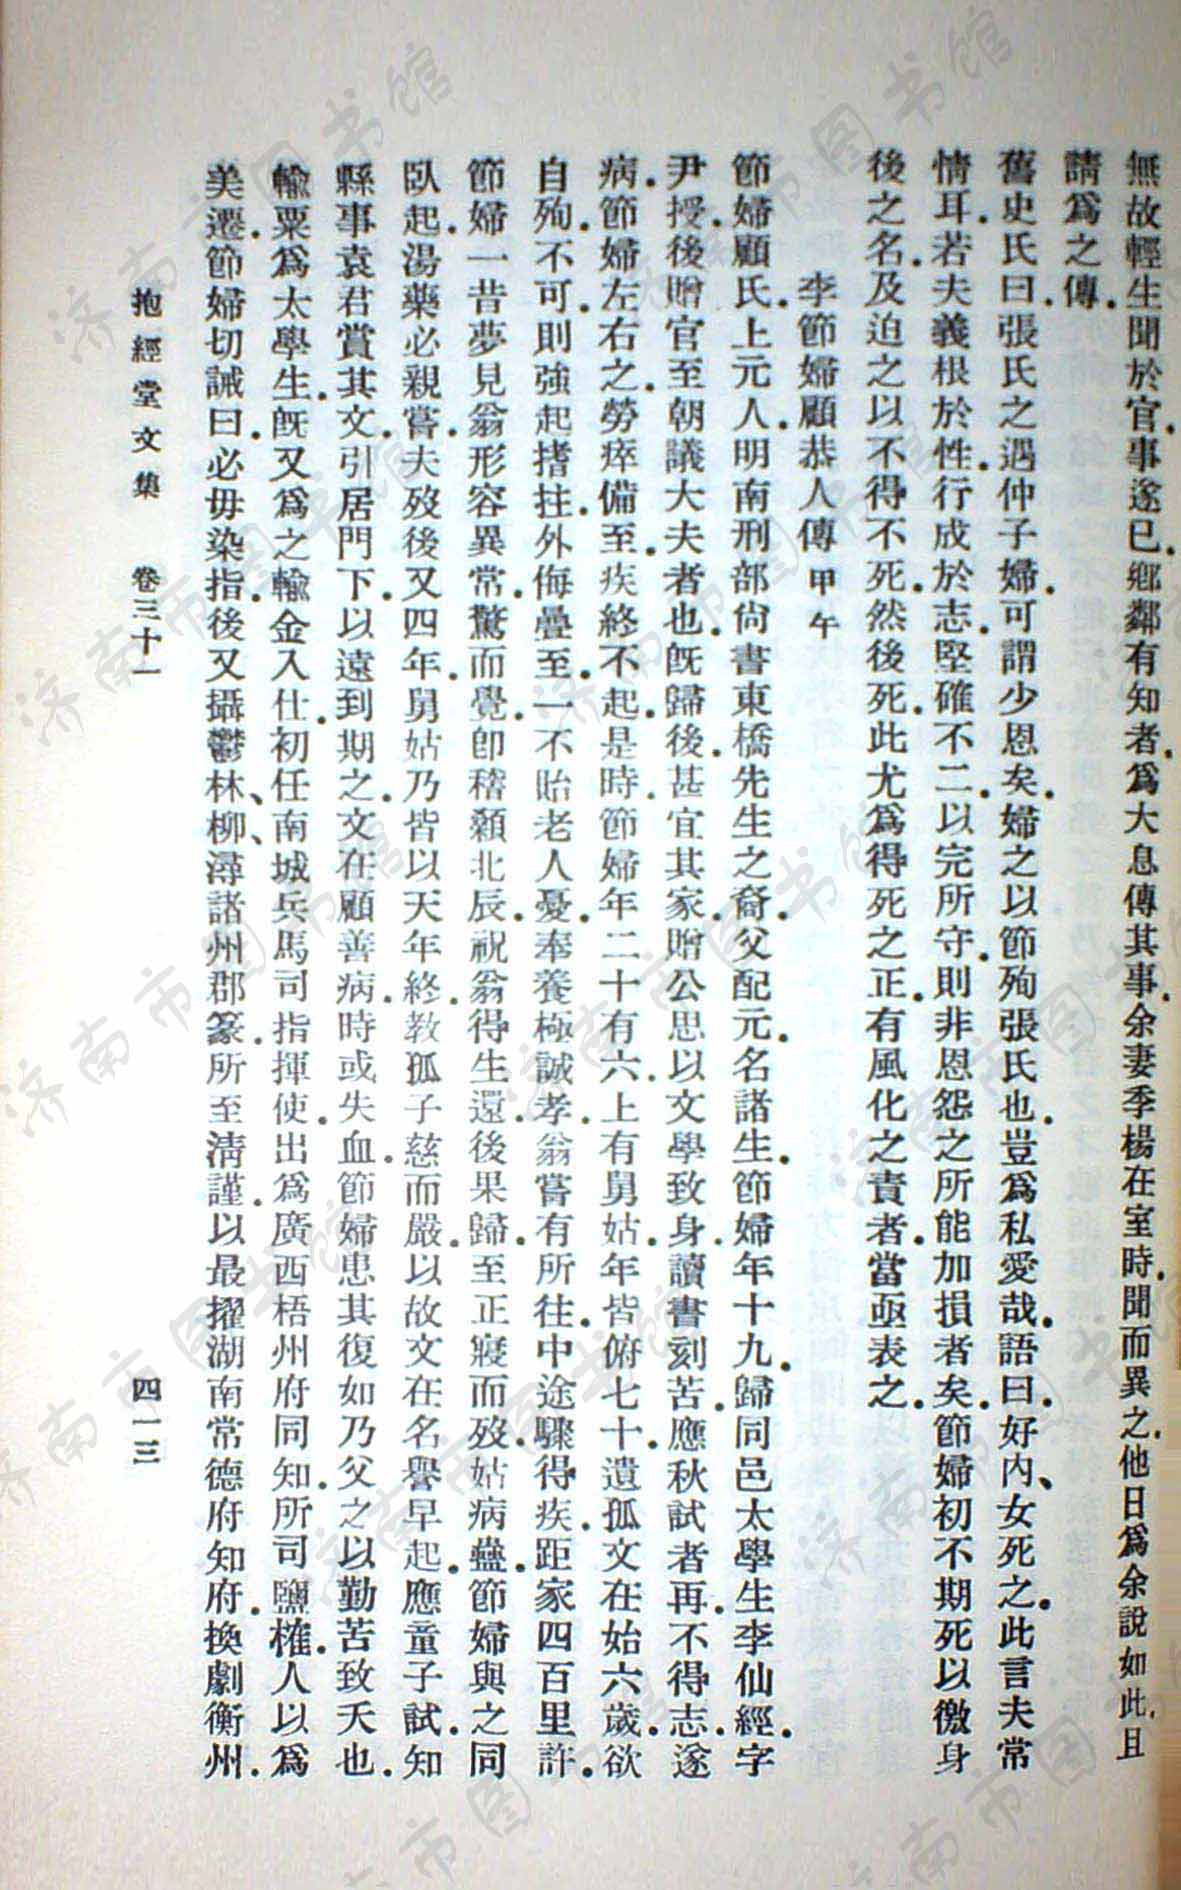 無故輕生聞於官.事遂已.鄉鄰有知者.爲大息傳其事.余妻季楊在室時.聞而異之.他日爲余說如此.且
請爲之傳.
舊史氏曰.張氏之遇仲子婦.可謂少恩矣.婦之以節殉張氏也.豈爲私愛哉.語曰.好內、女死之.此言夫常
情耳.若夫義根於性.行成於志.堅確不二.以完所守.則非恩怨之所能加損者矣.節婦初不期死以徼身
後之名.及迫之以不得不死.然後死.此尤爲得死之正.有風化之責者.當亟表之.
李節婦顧恭人傳 甲午
節婦顧氏.上元人.明南刑部尙書東橋先生之裔.父配元.名諸生.節婦年十九.歸同邑太學生李仙經.字
尹授.後贈官至朝議大夫者也.旣歸後.甚宜其家.贈公思以文學致身.讀書刻苦.應秋試者再.不得志.遂
病.節婦左右之.勞瘁備至.疾終不起.是時.節婦年二十有六.上有舅姑.年皆俯七十.遺孤文在始六歲.欲
自殉.不可.則強起搘拄.外侮疊至.一不貽老人憂.奉養極誠孝.翁嘗有所往.中途驟得疾.距家四百里許.
節婦一昔夢見翁形容異常.驚而覺.卽稽顙北辰.祝翁得生還.後果歸.至正寢而歿.姑病蠱.節婦與之同
臥起.湯藥必親嘗.夫歿後又四年.舅姑乃皆以天年終.教孤子慈而嚴.以故文在名譽早起.應童子試.知
縣事袁君賞其文.引居門下.以遠到期之.文在顧善病.時或失血.節婦患其復如乃父之以勤苦致夭也.
輸粟爲太學生.旣又爲之輸金入仕.初任南城兵馬司指揮使.出爲廣西梧州府同知.所司鹽榷.人以爲
美遷.節婦切誡曰.必毋染指.後又攝鬱林、柳、潯諸州郡篆.所至淸謹.以最擢湖南常德府知府.換劇衡州.
抱經堂文集 卷三十一 四一三
济南市图书馆